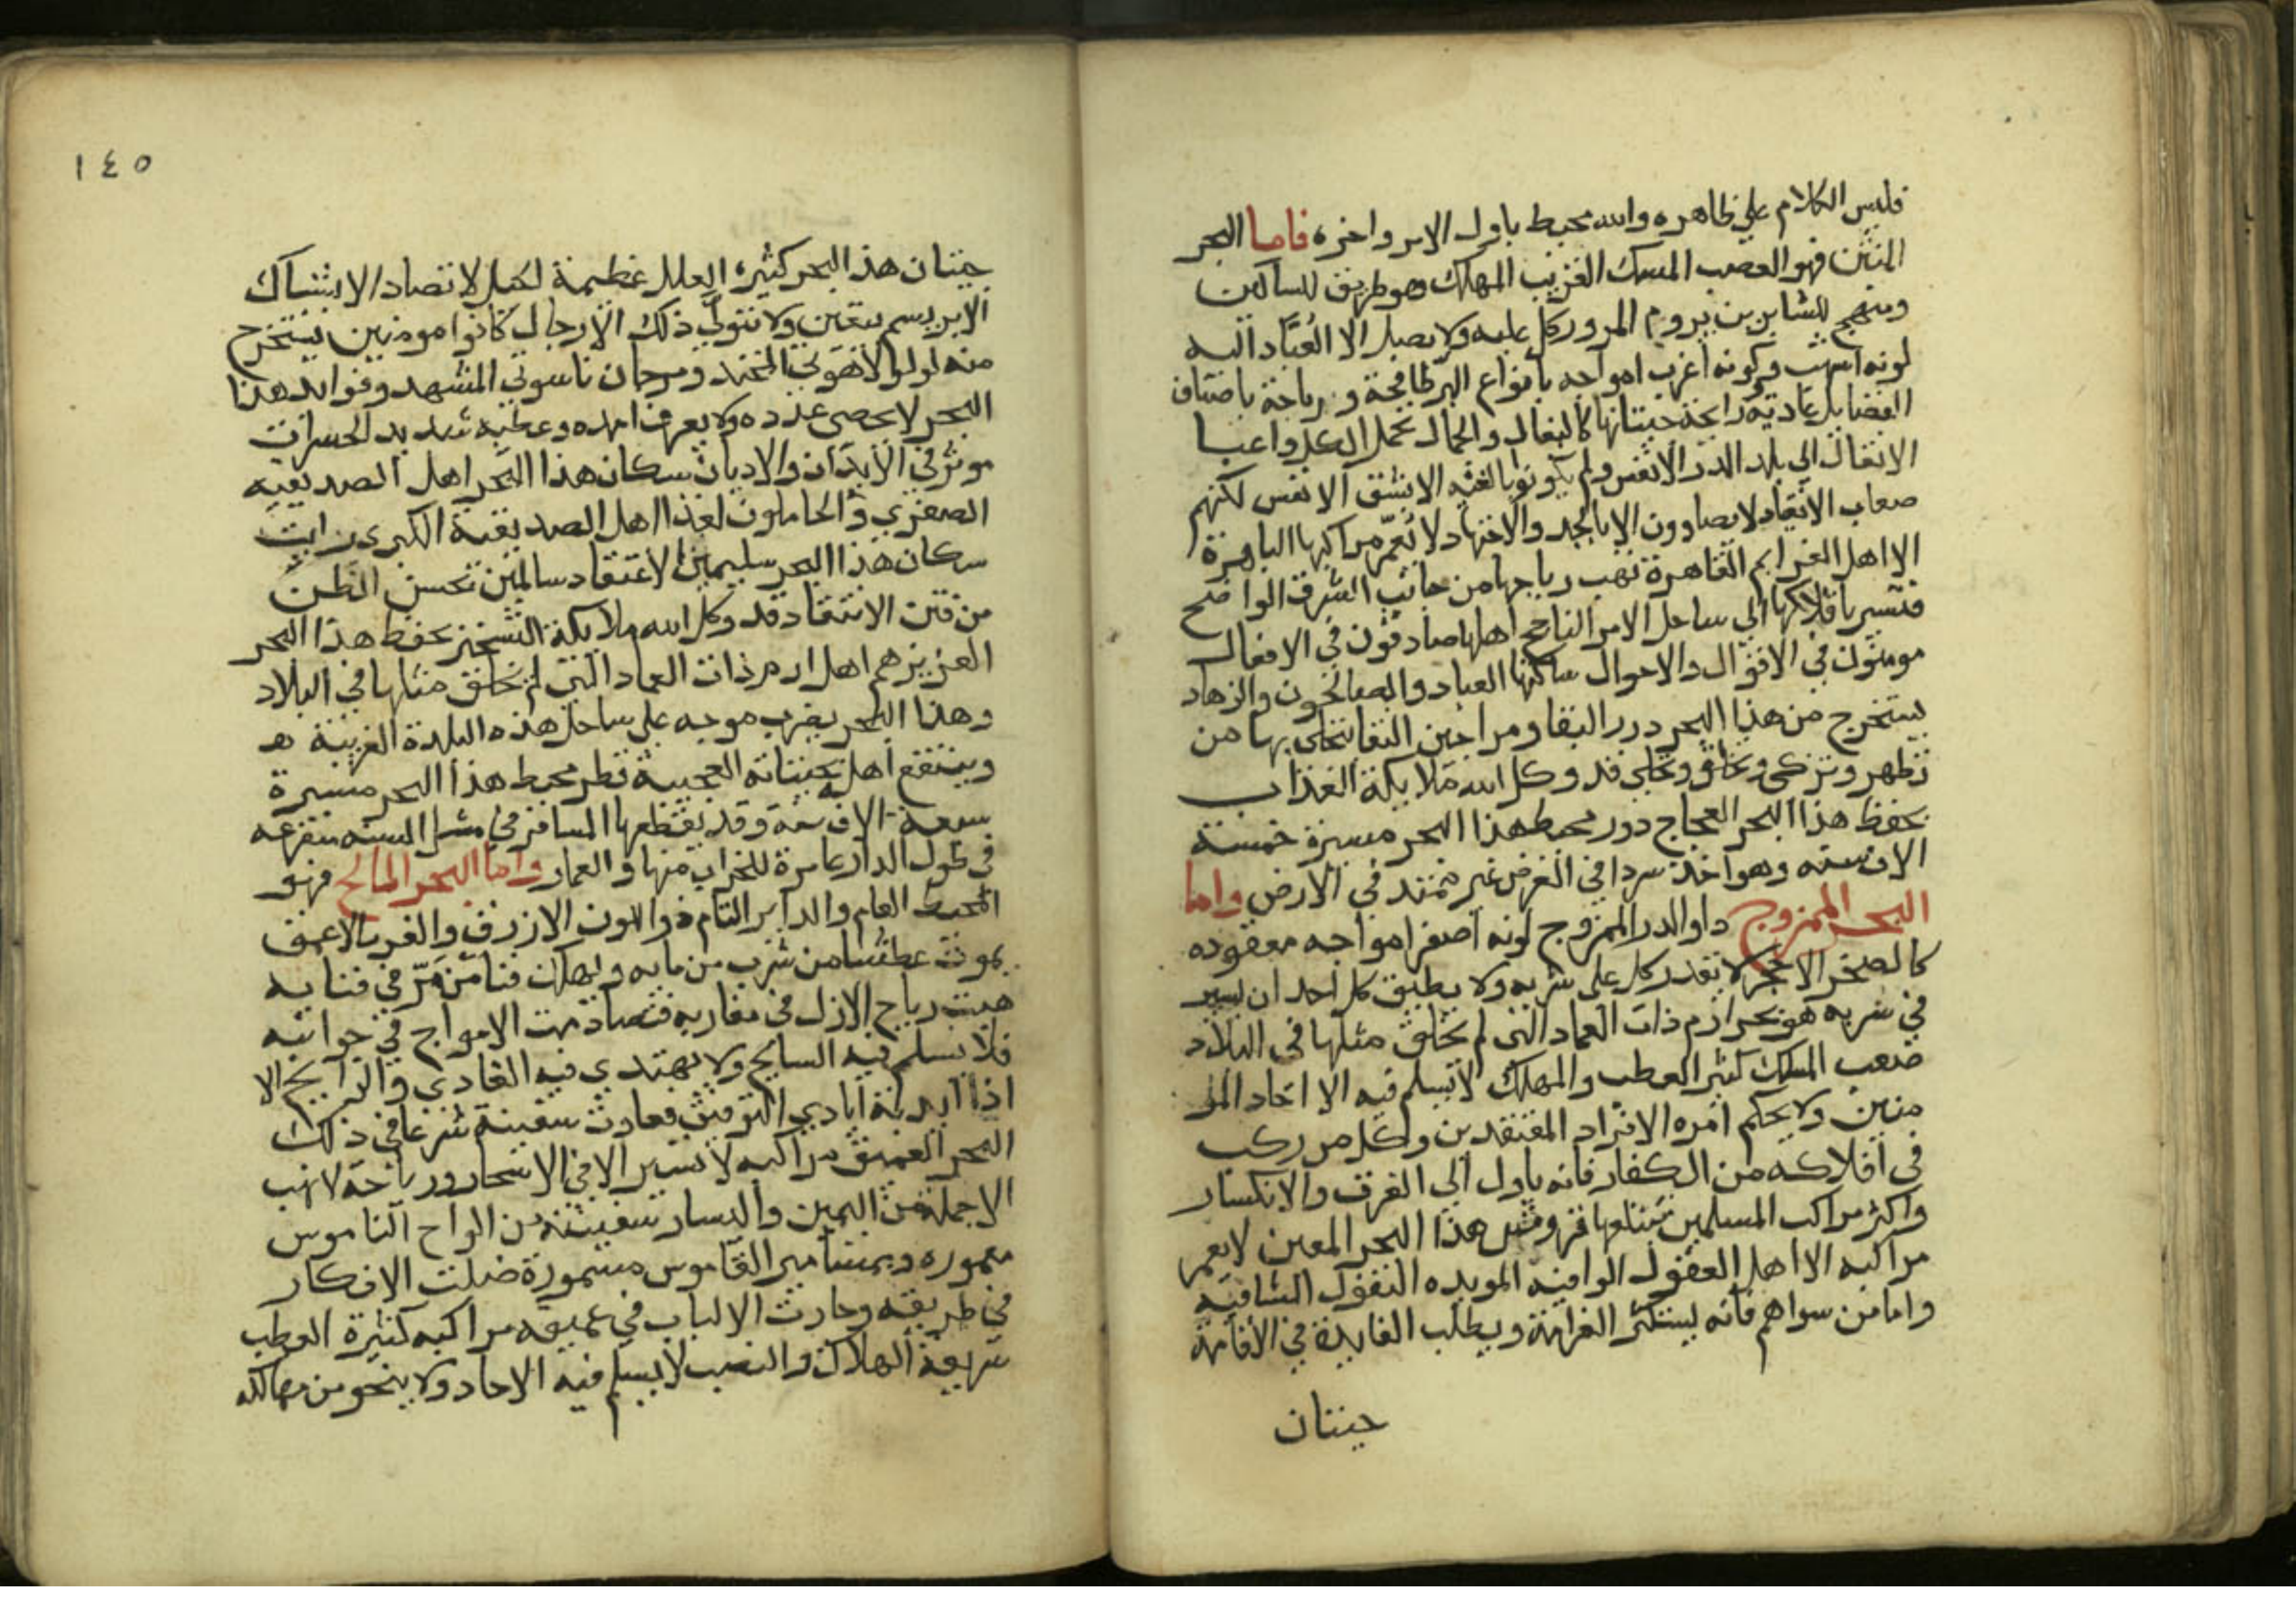 فليس الكلام علي ظاهره والله محيط باول الامر واخره فاما البحر
المنتن فهو الصعب المسلك القريب المهلك وهو طريق السالكين
ومنهج السايرين يروم المرور كل عليه ولا يصل الا العباد اليه
لونه اشهب وكونه اغرب امواجه بانواع البر طافحة ورياحه باصناف
الفضايل غادية رايحة حيتانها كالبغال والجمال تحمل الكل واعبا
الاثقال الي بلد الدر الانفس ولم يكونوا بالغيه الا بشق الانفس لكنهم
صعاب الانقياد لا يصادون الا بالجد والاجتهاد لا تعمر مراكبها الباهرة
الا اهل العزايم القاهرة تهب رياحها من جانب الشرق الواضح
فتسير بافلاكها الي ساحل الامر الناجح اهلها صادقون في الافعال
مومنون في الاقوال والاحوال ساكنها العباد والصالحون والزهاد
يستخرج من هذا البحر درر البقا ومراجين النقا يتحلي بها من
تطهر وتزكى وتخلق وتحلي قد وكل الله ملايكة العذاب
بحفظ هذا البحر العجاج دور محيط هذا البحر مسيرة خمسة
الاف سنه وهو اخذ سردا في العرض غير ممتد في الارض واما
البحر الممزوج داو الدر الممزوج لونه اصفر امواجه معقوده
كالصخر الاحمر لا يقدر كل على شربه ولا يطيق كل احد ان يسير
في سربه هو بحر ارم ذات العماد التي لم يخلق مثلها في البلاد
صعب المسلك كثير العطب والمهلك لا يسلم فيه الا احاد المو
منين ولا يحكم امره الا افراد المعتقدين وكل من ركب
في افلاكه من الكفار فانه ياول الي الغرق والانكسار
واكثر مراكب المسلمين تبتلعها قروش هذا البحر المعين لا يعمر
مراكبه الا اهل العقول الوافيه المويده النقول الشافيه
واما من سواهم فانه يستكثر الغرامة ويطلب الفايدة في الاقامة
حيتان
١٤٥
حيتان هذا البحر كثيره العلل عظيمة الحيل لا تصاد الا بشباك
الابريسم يتقين ولا يتولي ذلك الا رجال كانوا مومنين يستخرج
منه لولو لاهوتي المحتد ومرجان ناسوتي المشهد وفوايد هذا
البحر لا يحصى عدده ولا يعرف امده وعطبه شديد الخسران
موثر في الابدان والاديان سكان هذا البحر اهل الصديقيه
الصغري والحاملون لغذا اهل الصديقية الكبرى رايت
سكان هذا البحر سليمين الاعتقاد سالمين بحسن الظن
من فتن الانتقاد قد وكل الله ملايكة التسخير بحفظ هذا البحر
العزيز هم اهل ارم ذات العماد التي لم يخلق مثلها في البلاد
وهذا البحر يضرب موجه على ساحل هذه البلدة الغريبة
وينتفع اهله بحيتانه العجيبة قطر محيط هذا البحر مسيرة
سبعة الاف سنة وقد يقطعها المسافر في مثل السنه متفرعه
في طول الدار عامرة للخراب منها والعمار واما البحر المالح فهو
المحيط العام والداير التام ذو اللون الازرق والغور الاعمق
يموت عطشا من شرب من مايه ويهلك فنا من مر في فنايه
هبت رياح الازل في مغاربه فتصادمت الامواج في جوانبه
فلا يسلم فيه السابح ولا يهتدي فيه الغادي والرايح الا
اذا ايدته ايادي التوفيق فعادت سفينة شرعا في ذلك
البحر العميق مراكبه لا تسير الا في الاسحار ورياحه لا تهب
الا جملة من اليمين واليسار سفينته من الواح الناموس
معموره وبمسامير القاموس مسمورة ضلت الافكار
في طريقه وحارت الالباب في عميقه مراكبه كثيرة العطب
سريعة الهلاك والنصب لا يسلم فيه الا احاد ولا ينجو من مهالكه